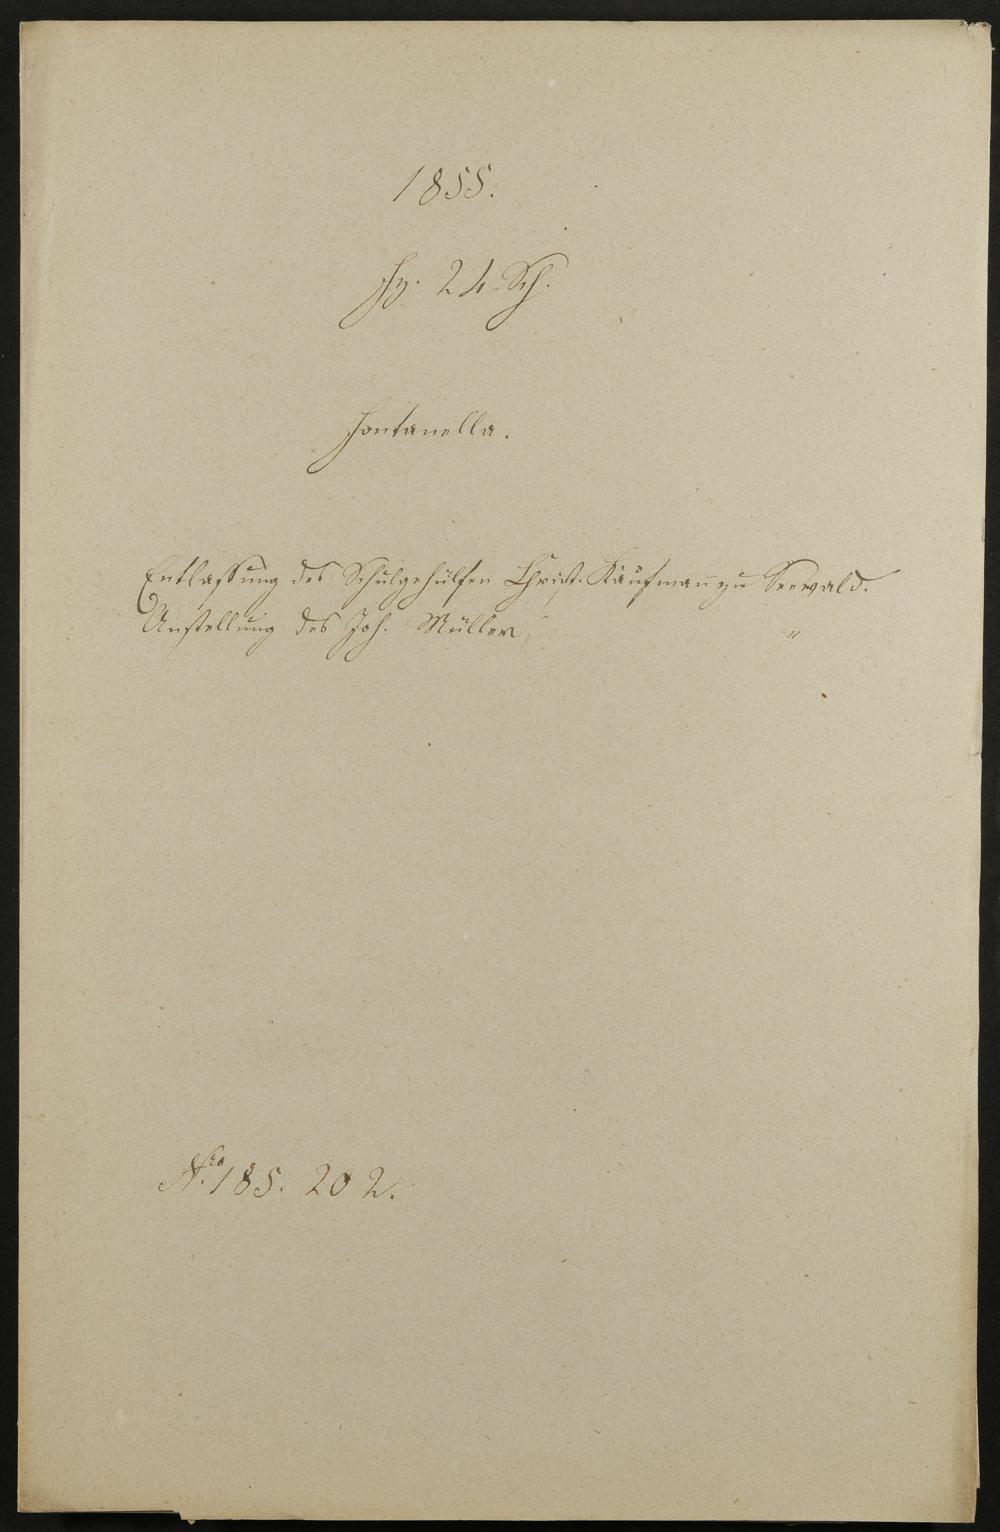 1855.
24 Sch.
Fontanella.
Entlassung des Schulgehülfen Christ. Kaufmañ zu Seewald.
Anstellung des Joh. Müller "
Nro. 185. 202.